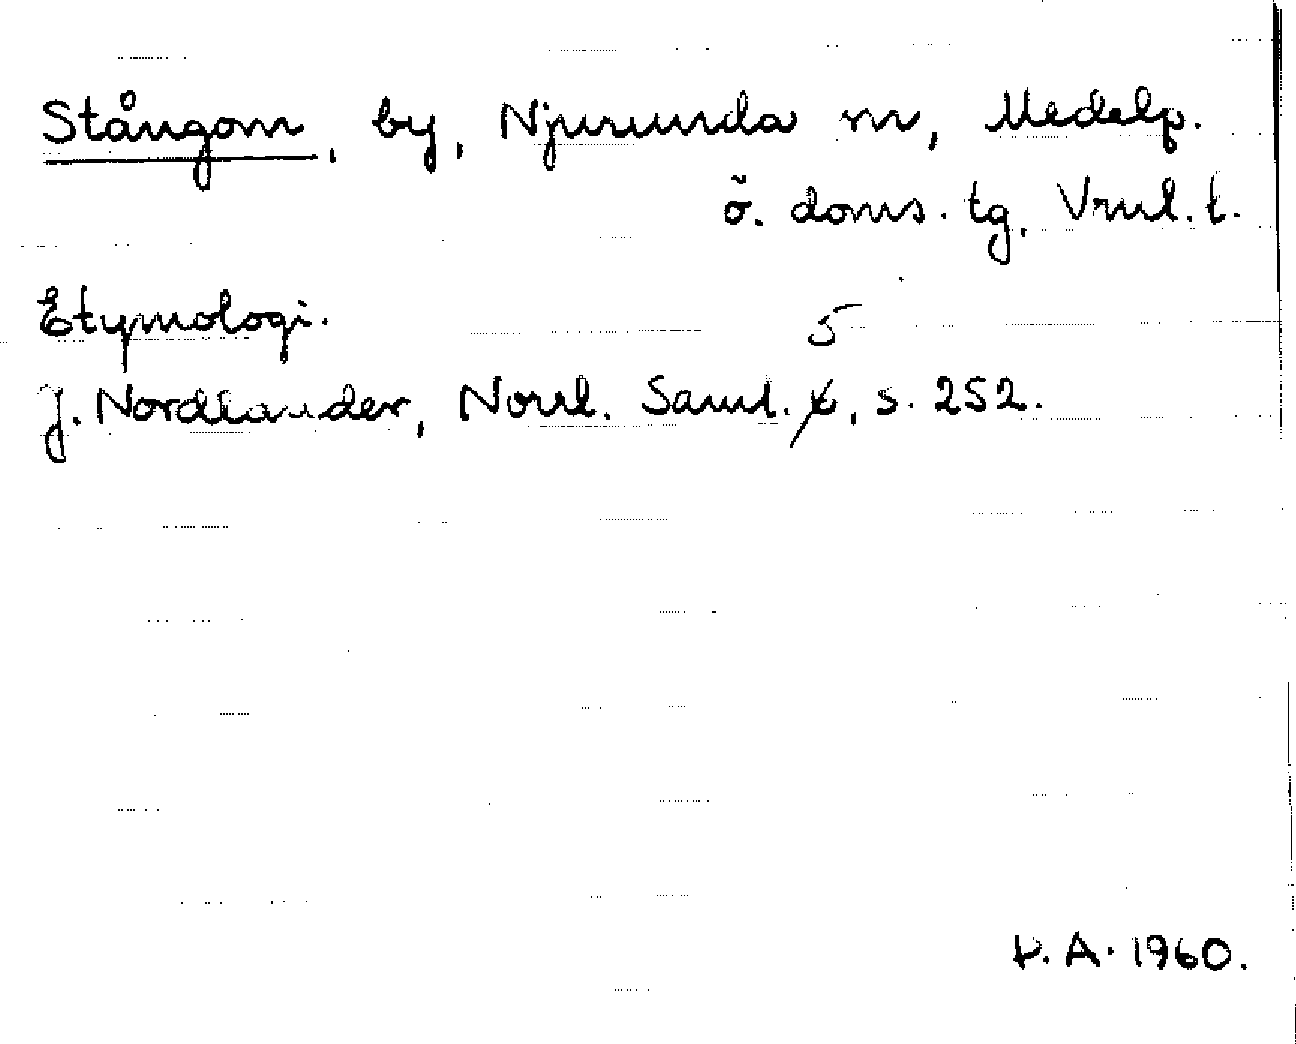 Stångom, by, Njurunda sn, Medelp.
ö. doms. tg. Vrml. t.
Etymologi.
5
J. Nordlander, Norrl. Saml. 6, s. 252.
A. 1960.